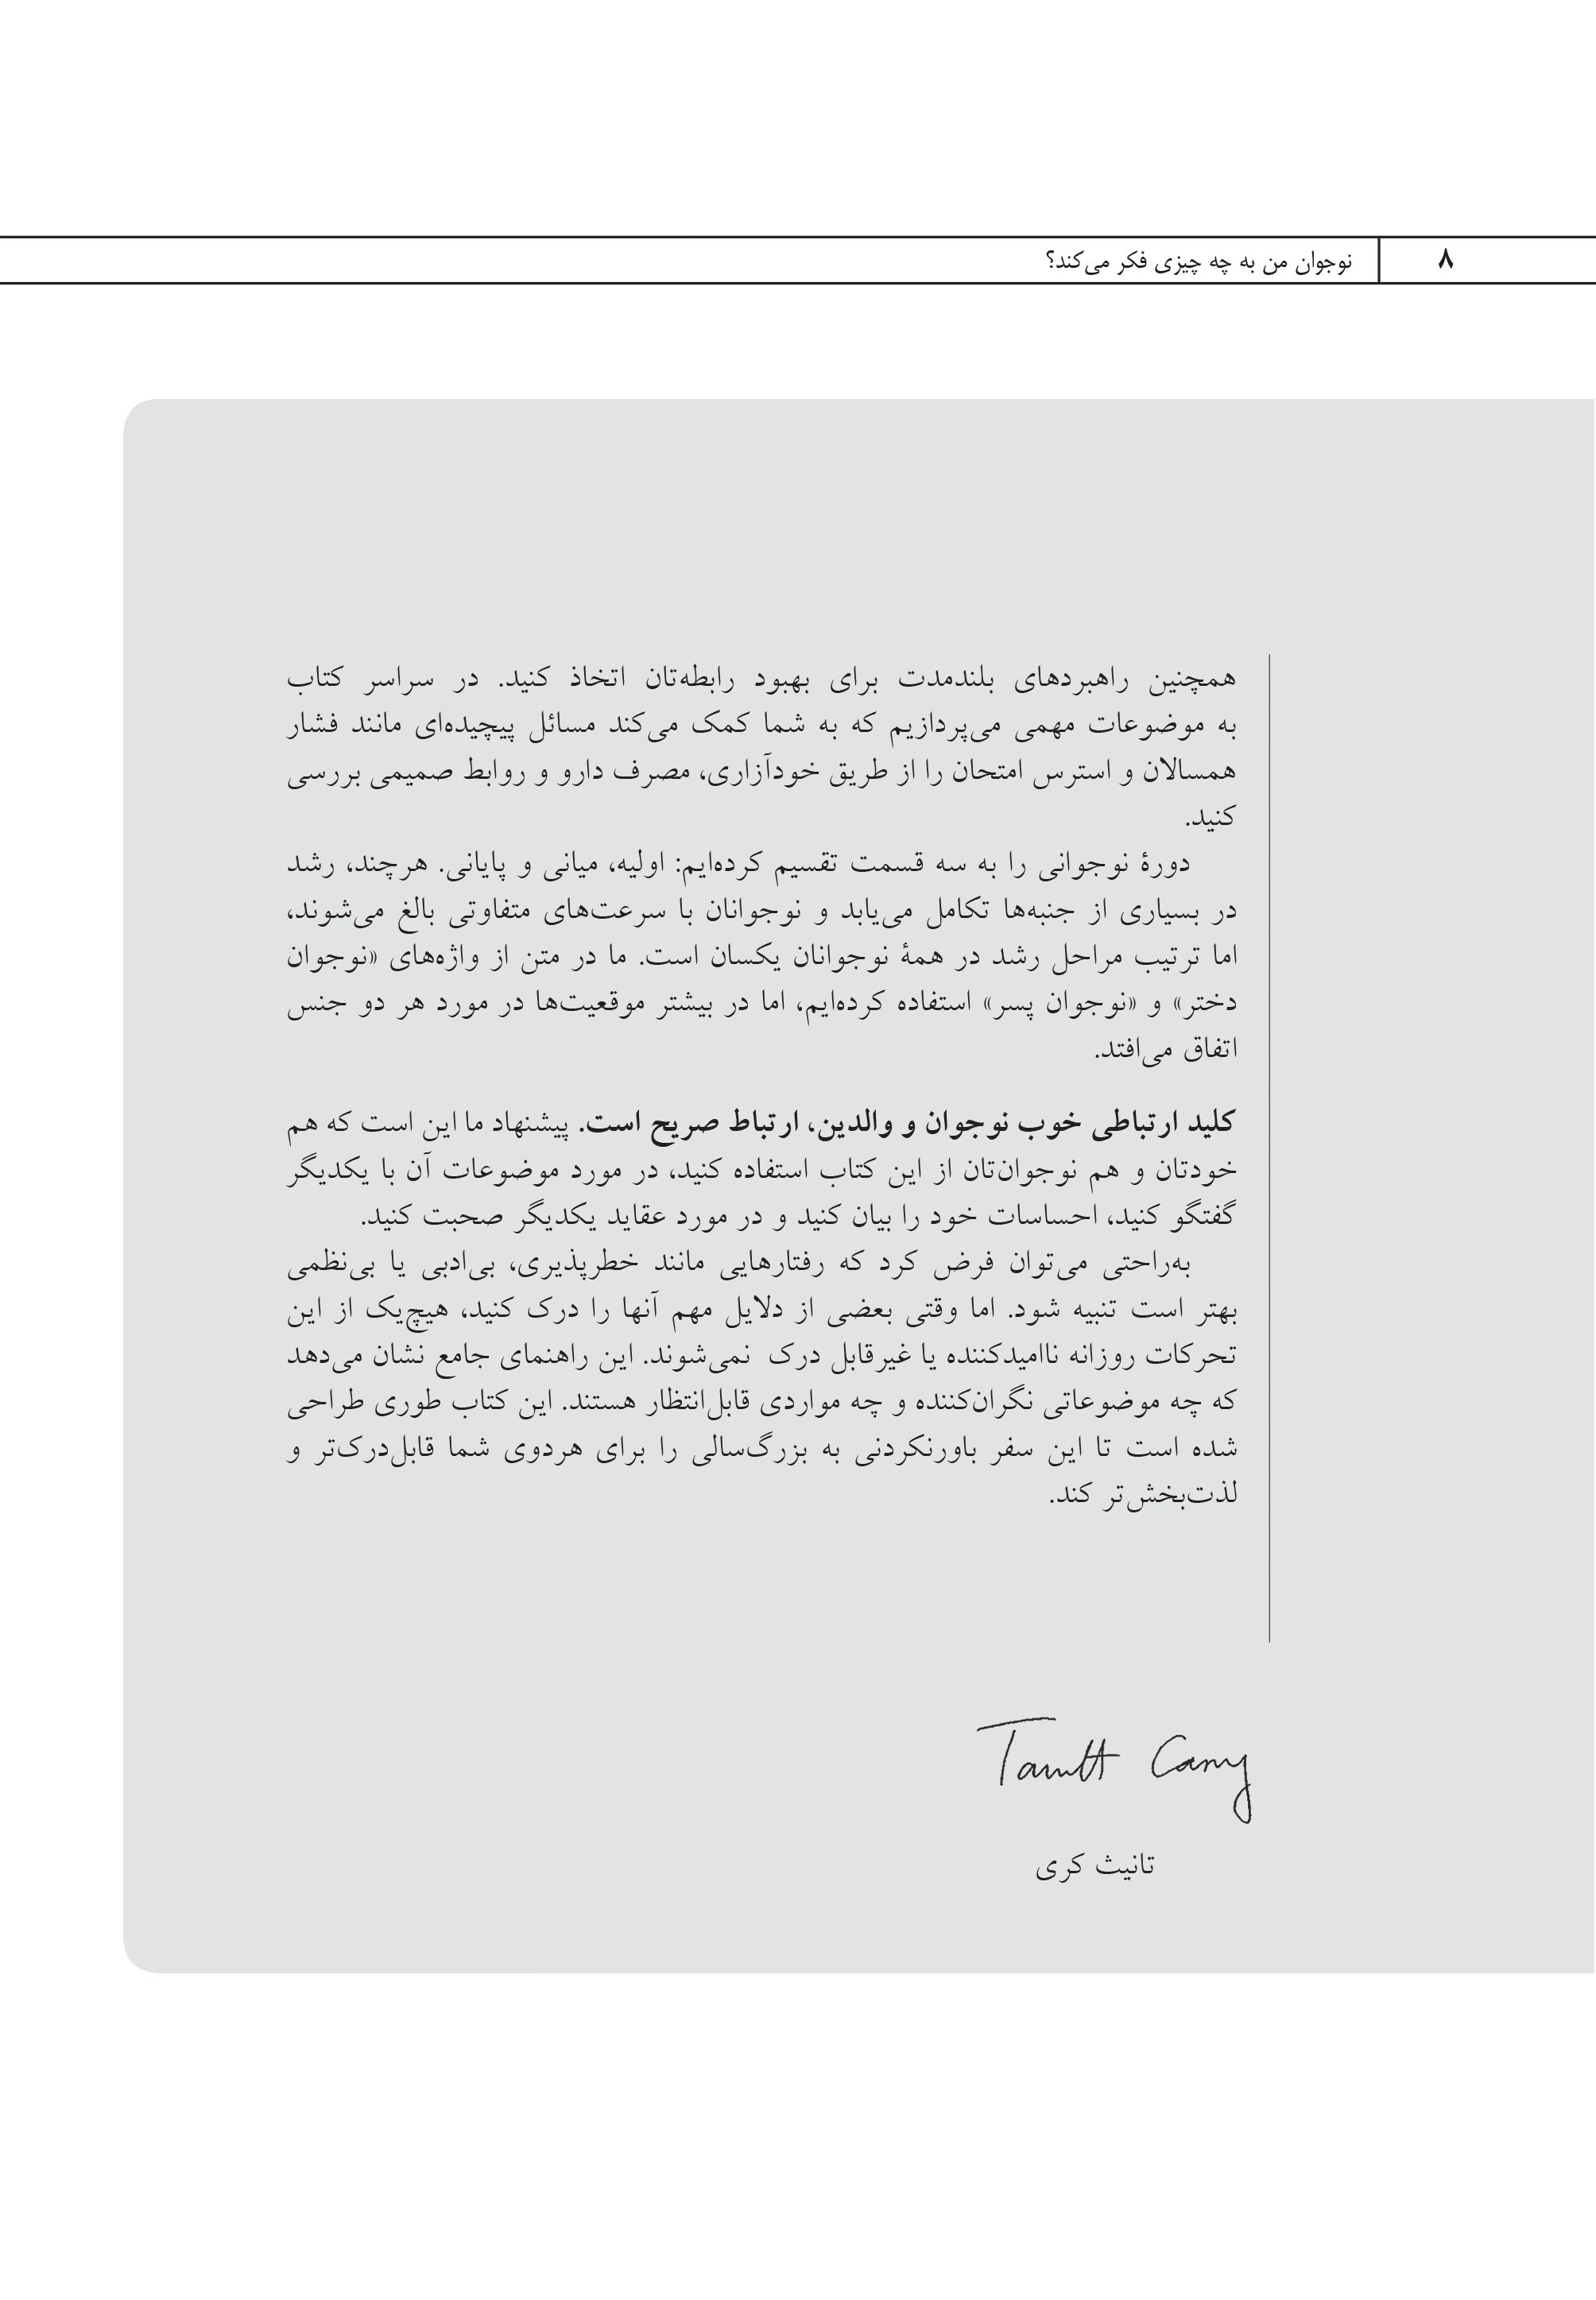 ۸
نوجوان من به چه چیزی فکر می‌کند؟
همچنین راهبردهای بلندمدت برای بهبود رابطه‌تان اتخاذ کنید. در سراسر کتاب
به موضوعات مهمی می‌پردازیم که به شما کمک می‌کند مسائل پیچیده‌ای مانند فشار
همسالان و استرس امتحان را از طریق خودآزاری، مصرف دارو و روابط صمیمی بررسی
کنید.
دورهٔ نوجوانی را به سه قسمت تقسیم کرده‌ایم: اولیه، میانی و پایانی. هرچند، رشد
در بسیاری از جنبه‌ها تکامل می‌یابد و نوجوانان با سرعت‌های متفاوتی بالغ می‌شوند،
اما ترتیب مراحل رشد در همهٔ نوجوانان یکسان است. ما در متن از واژه‌های «نوجوان
دختر» و «نوجوان پسر» استفاده کرده‌ایم، اما در بیشتر موقعیت‌ها در مورد هر دو جنس
اتفاق می‌افتد.
کلید ارتباطی خوب نوجوان و والدین، ارتباط صریح است. پیشنهاد ما این است که هم
خودتان و هم نوجوان‌تان از این کتاب استفاده کنید، در مورد موضوعات آن با یکدیگر
گفتگو کنید، احساسات خود را بیان کنید و در مورد عقاید یکدیگر صحبت کنید.
به‌راحتی می‌توان فرض کرد که رفتارهایی مانند خطرپذیری، بی‌ادبی یا بی‌نظمی
بهتر است تنبیه شود. اما وقتی بعضی از دلایل مهم آنها را درک کنید، هیچ‌یک از این
تحرکات روزانه ناامیدکننده یا غیرقابل درک نمی‌شوند. این راهنمای جامع نشان می‌دهد
که چه موضوعاتی نگران‌کننده و چه مواردی قابل‌انتظار هستند. این کتاب طوری طراحی
شده است تا این سفر باورنکردنی به بزرگ‌سالی را برای هردوی شما قابل‌درک‌تر و
لذت‌بخش‌تر کند.
Tanith Carey
تانیث کری